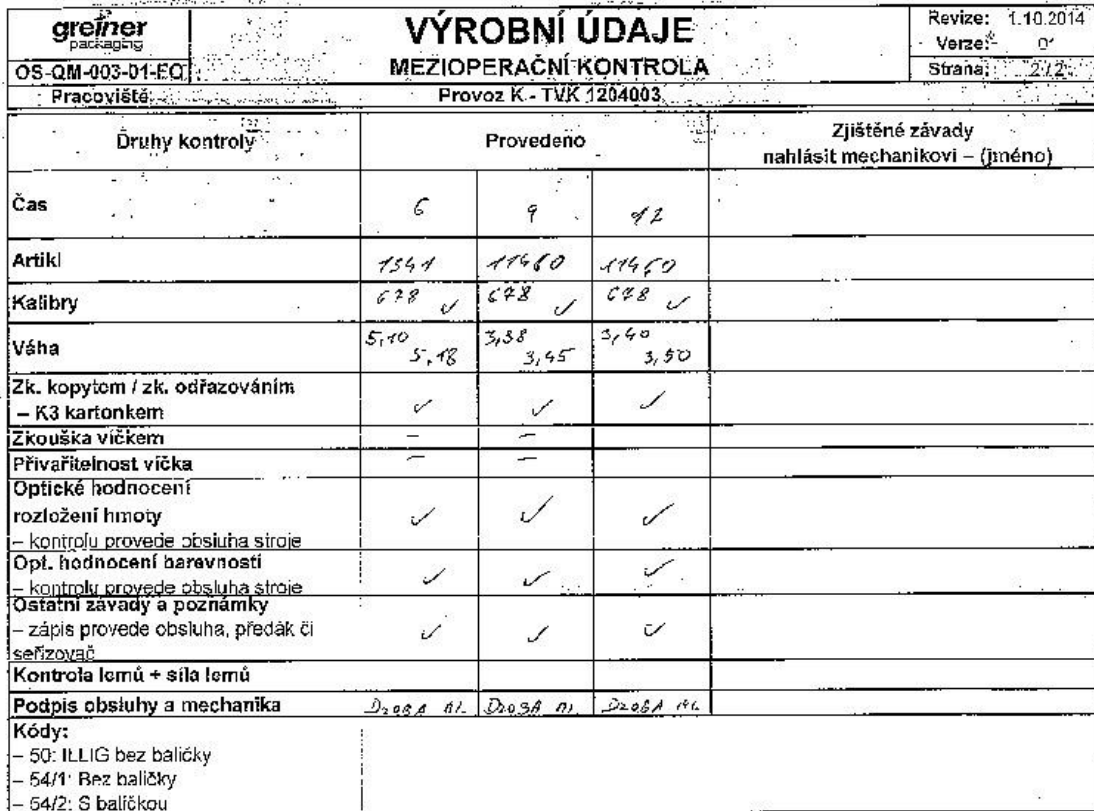 greiner
packaging
OS-QM-003-01-EQ
VÝROBNÍ ÚDAJE
MEZIOPERAČNÍ KONTROLA
Revize: 1.10.2014
Verze: 01
Strana: 2/2
Pracoviště: Provoz K - TVK 1204003
Druhy kontroly Provedeno Zjištěné závady
nahlásit mechanikovi – (jméno)
Čas 6 9 12
Artikl 1541 11460 11460
Kalibry 678 ✓ 678 ✓ 678 ✓
Váha 5,10 5,18 3,38 3,45 3,40 3,50
Zk. kopytem / zk. odřazováním
– K3 kartonkem ✓ ✓ ✓
Zkouška víčkem – –
Přivařitelnost víčka – –
Optické hodnocení
rozložení hmoty ✓ ✓ ✓
– kontrolu provede obsluha stroje
Opt. hodnocení barevnosti ✓ ✓ ✓
– kontrolu provede obsluha stroje
Ostatní závady a poznámky
– zápis provede obsluha, předák či ✓ ✓ ✓
seřizovač
Kontrola lemů + síla lemů
Podpis obsluhy a mechanika
Kódy:
– 50: ILLIG bez baličky
– 54/1: Bez baličky
– 54/2: S baličkou